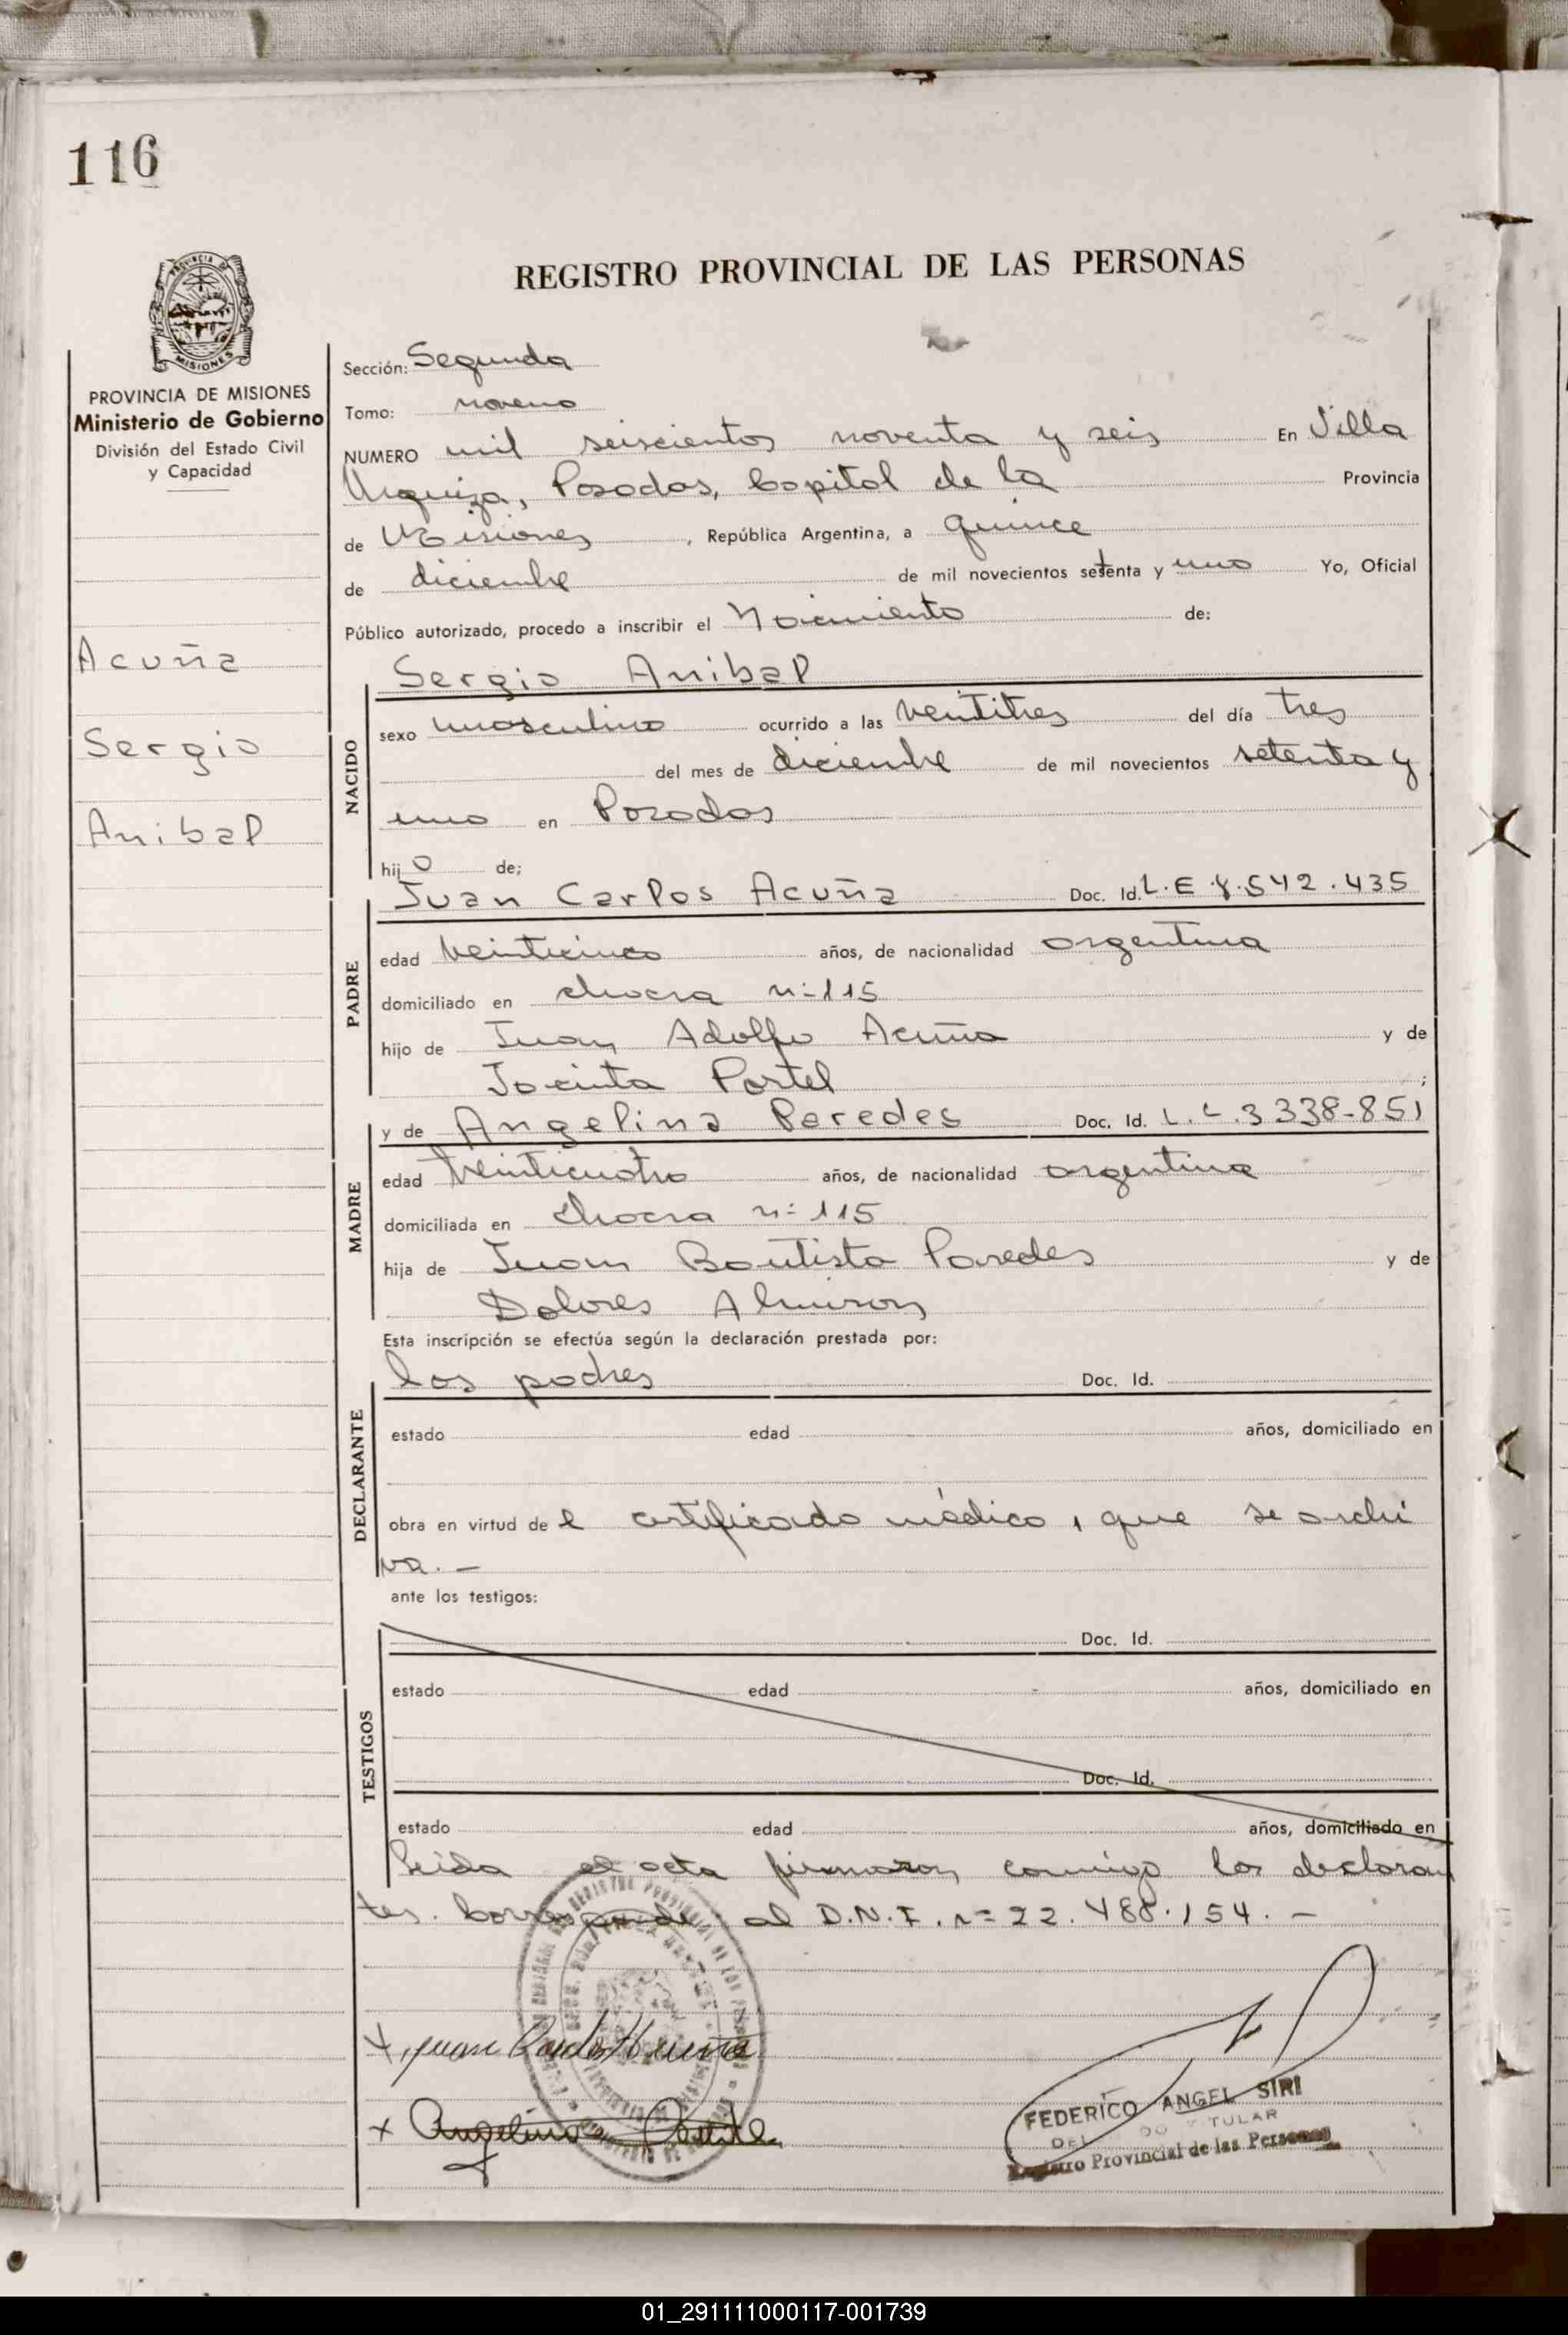 116
REGISTRO PROVINCIAL DE LAS PERSONAS
MISIONES
PROVINCIA DE MISIONES
Ministerio de Gobierno
División del Estado Civil
y Capacidad
Acuña
Sergio
Anibal
Sección: Segunda
Tomo: noveno
NUMERO mil seiscientos noventa y seis En Villa
Urquiza, Posadas, Capital de la Provincia
de Misiones, República Argentina, a quince
de diciembre de mil novecientos setenta y uno Yo, Oficial
Público autorizado, procedo a inscribir el Nacimiento de:
Sergio Anibal
NACIDO
sexo masculino ocurrido a las ventitres del día tres
del mes de diciembre de mil novecientos setenta y
uno en Posadas
hijo de;
Juan Carlos Acuña Doc. Id. L.E 8.542.435
PADRE
edad veinticinco años, de nacionalidad argentina
domiciliado en chacra n:115
hijo de Juan Adolfo Acuña y de
Jacinta Portel ;
y de Angelina Paredes Doc. Id. L.C.3338-851
MADRE
edad veinticuatro años, de nacionalidad argentina
domiciliada en chacra n:115
hija de Juan Bautista Paredes y de
Dolores Almiron
Esta inscripción se efectúa según la declaración prestada por:
los padres Doc. Id.
DECLARANTE
estado edad años, domiciliado en
obra en virtud del certificado médico, que se archi
va.-
ante los testigos:
Doc. Id.
TESTIGOS
estado edad años, domiciliado en
Doc. Id.
estado edad años, domiciliado en
Leida el acta firmaron conmigo los declaran
tes. Corresponde al D.N.I. n=22.488.154.-
x Juan Carlos Acuña
x Angelina
FEDERICO ANGEL SIRI
Registro Provincial de las Personas
01_291111000117-001739